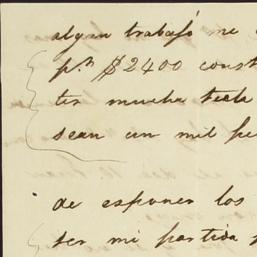 algun trabajo me
pr $2400 const
ter mucha tecla
sean un mil pe
de esponer los
ser mi partida